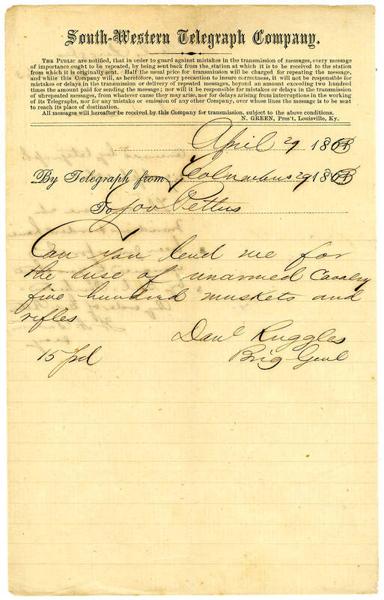 South-Western Telegraph Company.
THE PUBLIC are notified, that in order to guard against mistakes in the transmission of messages, every message
of importance ought to be repeated, by being sent back from the station at which it is to be received to the station
from which it is originally sent. Half the usual price for transmission will be charged for repeating the message,
and while this Company will, as heretofore, use every precaution to insure correctness, it will not be responsible for
mistakes or delays in the transmission or delivery of repeated messages, beyond an amount exceeding two hundred
times the amount paid for sending the message; nor will it be responsible for mistakes or delays in the transmission
of unrepeated messages, from whatever cause they may arise, nor for delays arising from interruptions in the working
of its Telegraphs, nor for any mistake or omission of any other Company, over whose lines the message is to be sent
to reach its place of destination.
All messages will hereafter be received by this Company for transmission, subject to the above conditions.
N. GREEN, Pres't, Louisville, Ky.
April 29 1863
By Telegraph from Columbus 29 1863
To Gov Pettus
Can you lend me for
the use of unarmed Cavalry
five hundred muskets and
rifles
Danl Ruggles
15 pd Brig Genl